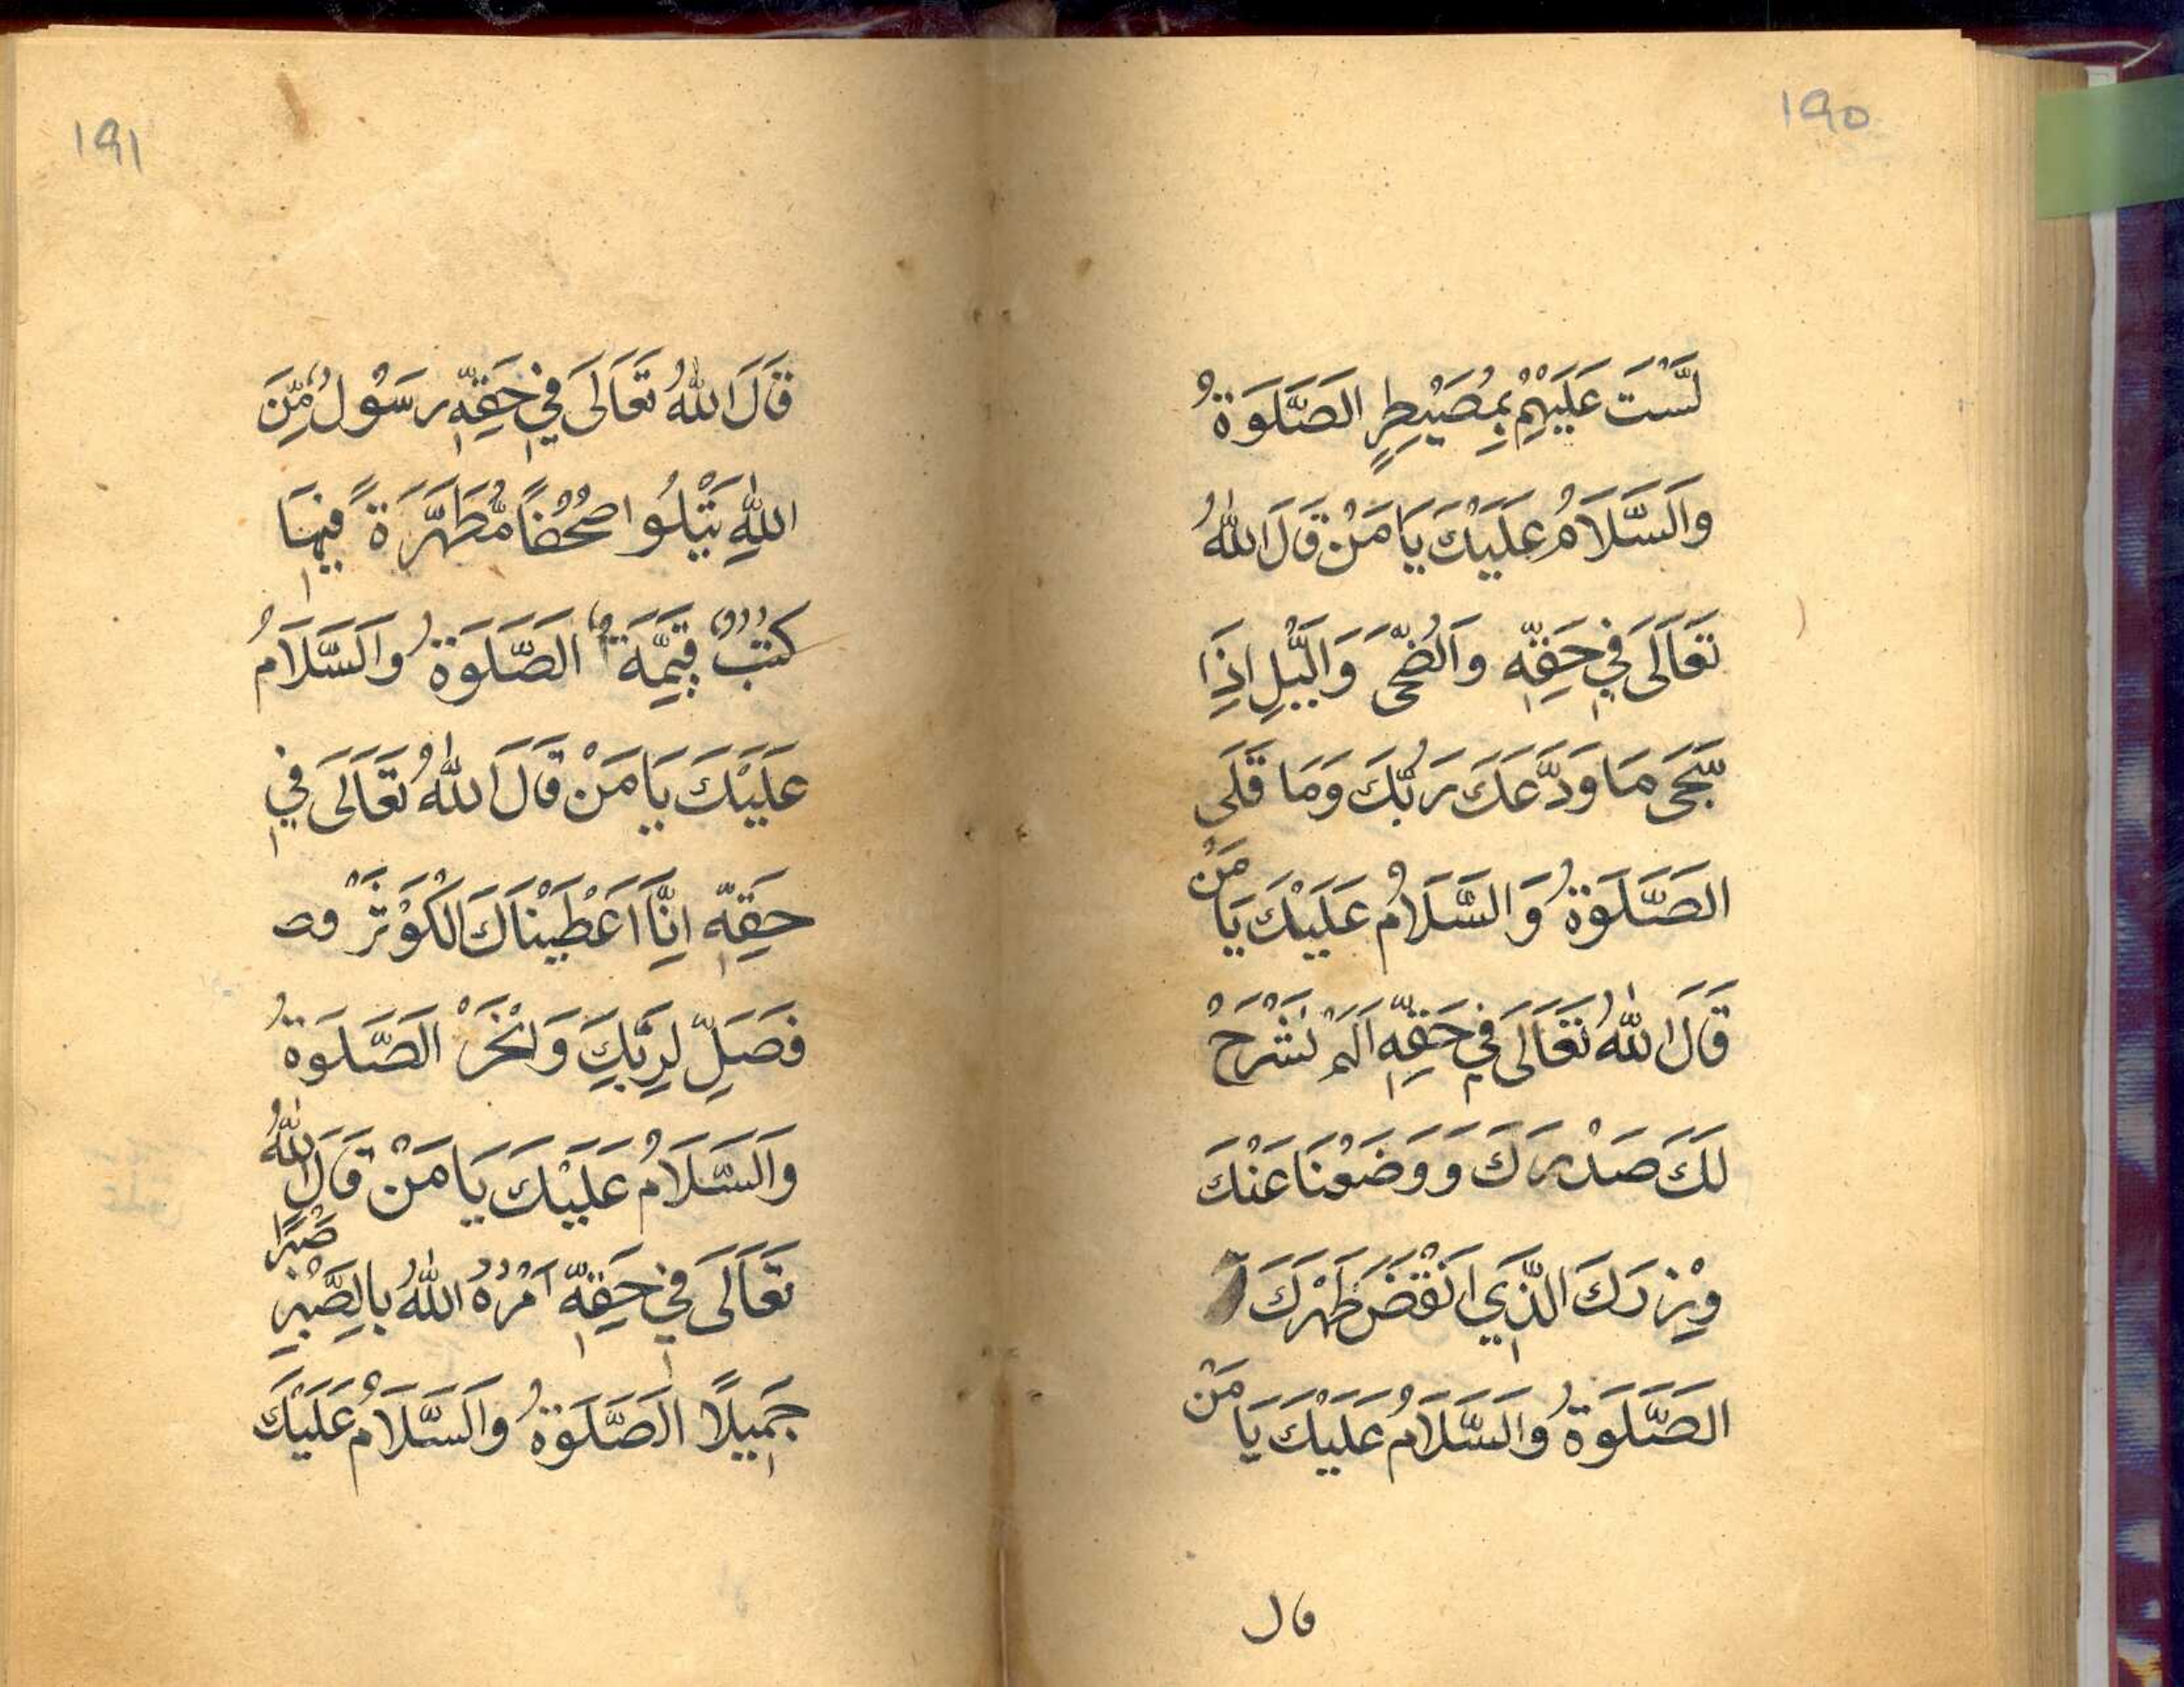 ١٩٥
لَّسْتَ عَلَيْهِمْ بِمُصَيْطِرٍ الصَّلَوةُ
وَالسَّلَامُ عَلَيْكَ يَا مَنْ قَالَ اللّٰهُ
تَعَالَى فِي حَقِّهِ وَالضُّحَى وَالَّيْلِ اِذَا
سَجَى مَا وَدَّعَكَ رَبُّكَ وَمَا قَلَى
الصَّلَوةُ وَالسَّلَامُ عَلَيْكَ يَا مَنْ
قَالَ اللّٰهُ تَعَالَى فِي حَقِّهِ اَلَمْ نَشْرَحْ
لَكَ صَدْرَكَ وَوَضَعْنَا عَنْكَ
وِزْرَكَ الَّذِي اَنْقَضَ ظَهْرَكَ
الصَّلَوةُ وَالسَّلَامُ عَلَيْكَ يَا مَنْ
قال
١٩١
قَالَ اللّٰهُ تَعَالَى فِي حَقِّهِ رَسُولٌ مِّنَ
اللّٰهِ يَتْلُوا صُحُفًا مُّطَهَّرَةً فِيهَا
كُتُبٌ قَيِّمَةٌ الصَّلَوةُ وَالسَّلَامُ
عَلَيْكَ يَا مَنْ قَالَ اللّٰهُ تَعَالَى فِي
حَقِّهِ اِنَّا اَعْطَيْنَاكَ الْكَوْثَرْ
فَصَلِّ لِرَبِّكَ وَانْحَرْ الصَّلَوةُ
وَالسَّلَامُ عَلَيْكَ يَا مَنْ قَالَ اللّٰهُ
تَعَالَى فِي حَقِّهِ اَمْرُهُ اللّٰهُ بِالصَّبْرِ صَبْرًا
جَمِيلًا الصَّلَوةُ وَالسَّلَامُ عَلَيْكَ